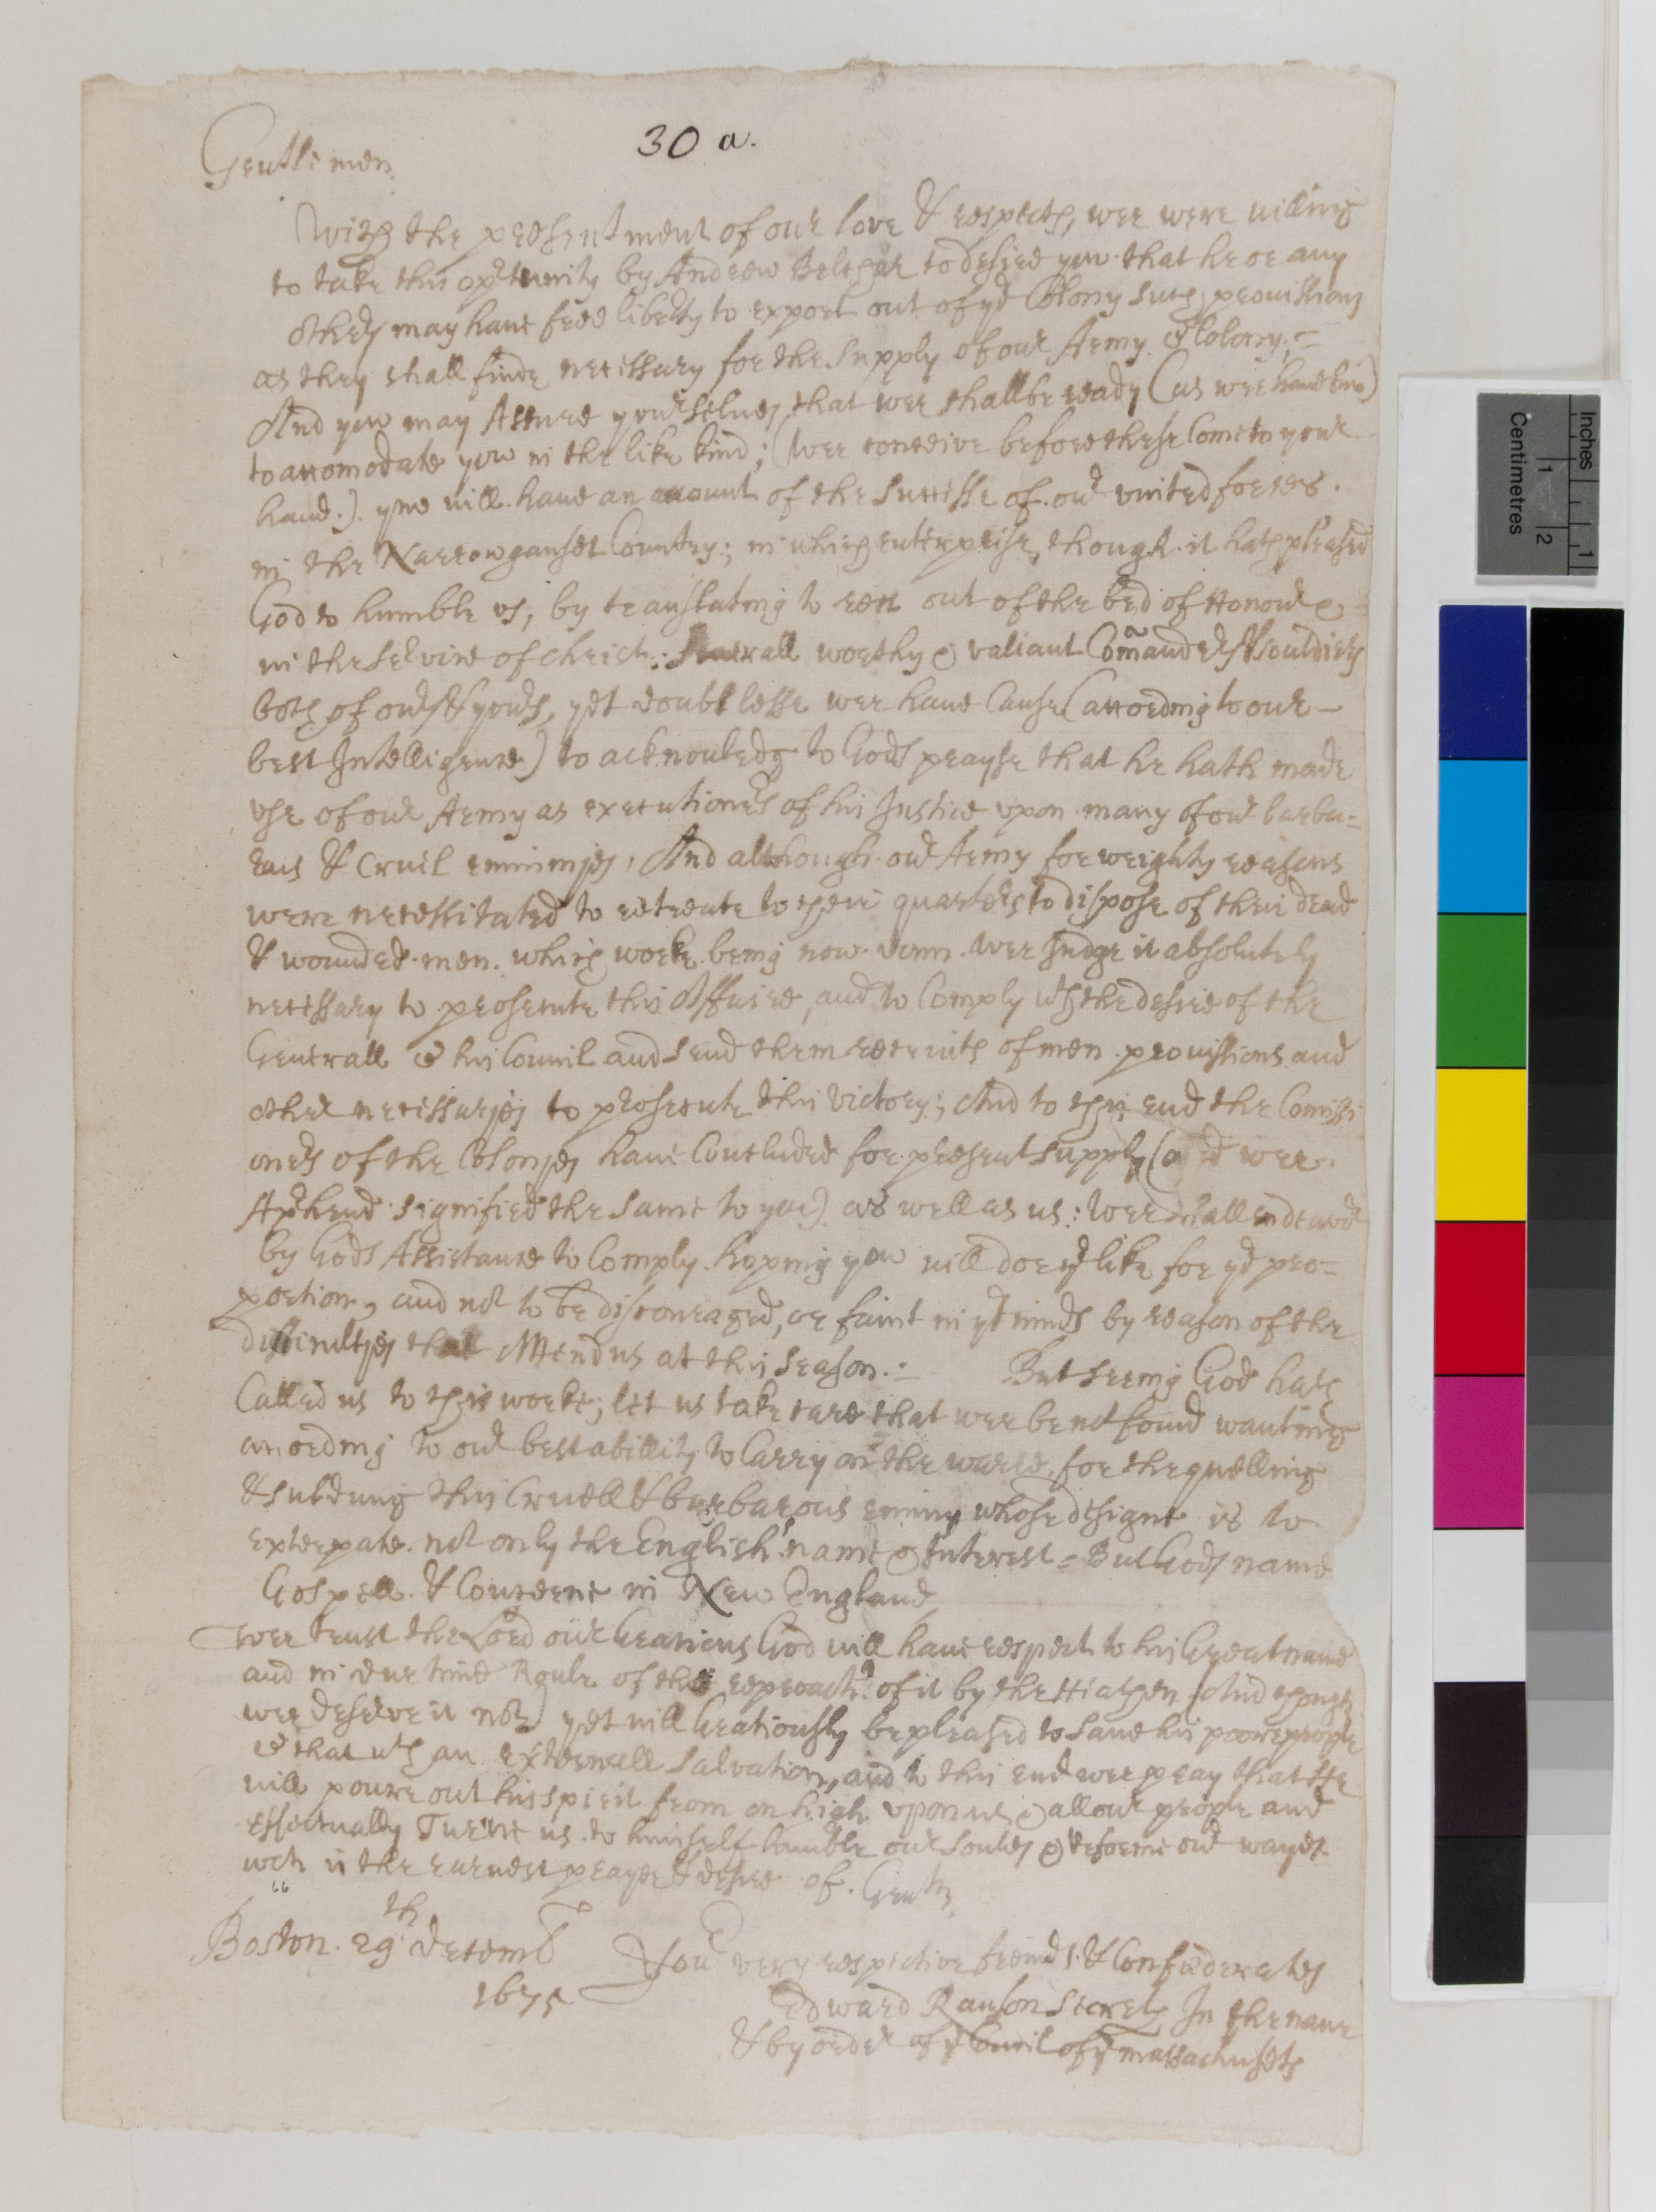 30 a.
Gentlemen
With the presentment of our love & respects, wee were willing
to take this oprtunity by Andrew Belchar to desire yow that he or any
others may have free liberty to export out of yr Colony such provissions
as they shall finde necessary for the supply of our Army & Colony;=
And yow may Assure yourselves, that wee shall be ready (as wee have bin)
to accomodate yow in the like kind; (Wee conceive before these Come to your
hand.). yow will have an account of the successe of our united forces.
in the Narrowganset Country; in which enterprise, though it hath pleased
God to humble us, by translating to rest out of the bed of Honour &
in the service of christ: severall worthy & valiant Comanders & souldiers
both of ours & yours, yet doubtlesse wee have Cause (according to our-
best Intelligence) to acknowledg to Gods prayse that he hath made
use of our Army as executioners of his Justice upon many of our barba=
rous & cruil ennimjes, And although our Army for weighty reasons
were necessitated to retreate to their quarters to dispose of their dead
& wounded men. which worke being now donn. Wee Judge it absolutely
necessary to prosecute this Affaire, and to Comply wth the desire of the
Generall & his Councill and send them recruits of men provissions and
other necessarjes to prosecute this victory; And to this end the Comissi
oners of the Colonjes have Concluded for present supply ( wee
Aprhend signified the same to you) as well as us: Wee shall endeavor
by Gods Assistance to Comply. hoping yow will doe ye like for yr pro=
portion, and not to be discouraged, or faint in yr minds by reason of the
difficultjes that Attend us at this season.:- But seeing God hath
Called us to this worke; let us take care that wee be not found wanting
according to our best abillity to Carry on the warre, for the quelling
& subduing this Cruell & barbarous enimy whose designe is to
exterpate. not only the English name & Interest = But Gods name
Gospell & Concerne in New England
Wee trust the Lord our Gracious God will have respect to his Great name
and in due time Roule of the reproach of it by the Heathen (And though
wee deserve it not) yet will Gratiously be pleased to save his poore people
& that wth an externall salvation, and to this end wee pray that He
will poure out his spirit from on high upon us & all our people and
effectually Turne us to himself humble our soules & reforme our wayes
wch is the earnest prayer & desire of. Gentn
Boston. 29th decembr
1675
Your very respective freinds & Confederates
Edward Rawson Secrety In the name
& by order of ye Councill of ye massachusets